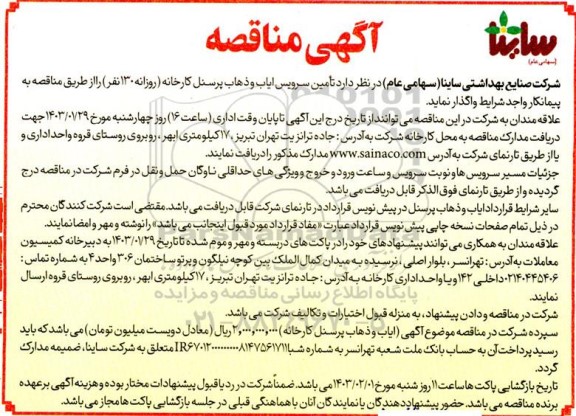 ساینا
(سهامی عام)
آگهی مناقصه
شرکت صنایع بهداشتی ساینا(سهامی عام) در نظر دارد تأمین سرویس ایاب و ذهاب پرسنل کارخانه (روزانه ۱۳۰ نفر) را از طریق مناقصه به
پیمانکار واجد شرایط واگذار نماید.
علاقه مندان به شرکت در این مناقصه می توانند از تاریخ درج این آگهی تا پایان وقت اداری (ساعت ۱۶) روز چهارشنبه مورخ ۱۴۰۳/۰۱/۲۹ جهت
دریافت مدارک مناقصه به محل کارخانه شرکت به آدرس : جاده ترانزیت تهران تبریز ،۱۷کیلومتری ابهر ، روبروی روستای قروه واحد اداری و
یا از طریق تارنمای شرکت به آدرس www.sainaco.com مدارک مذکور را دریافت نمایند.
جزئیات مسیر سرویس ها و نوبت سرویس و ساعت ورود و خروج و ویژگی های حداقلی ناوگان حمل و نقل در فرم شرکت در مناقصه درج
گردیده و از طریق تارنمای فوق الذکر قابل دریافت می باشد.
سایر شرایط قرارداد ایاب و ذهاب پرسنل در پیش نویس قرارداد در تارنمای شرکت قابل دریافت می باشد. مقتضی است شرکت کنندگان محترم
در ذیل تمام صفحات نسخه چاپی پیش نویس قرارداد عبارت « مفاد قرارداد مورد قبول اینجانب می باشد» را نوشته و مهر و امضا نمایند.
علاقه مندان به همکاری می توانند پیشنهادهای خود را در پاکت های دربسته و مهر و موم شده تا تاریخ ۱۴۰۳/۰۱/۲۹ به دبیرخانه کمیسیون
معاملات به آدرس: تهرانسر، بلوار اصلی ، نرسیده به میدان کمال الملک بین کوچه نیلگون و پرتو ساختمان ۳۰۶ واحد ۴ به شماره تماس :
۰۲۱۴۰۴۴۵۴۰۶ داخلی ۱۴۲ و یا واحد اداری کارخانه به آدرس : جاده ترانزیت تهران تبریز ، ۱۷کیلومتری ابهر ، روبروی روستای قروه ارسال
نمایند.
شرکت در مناقصه و دادن پیشنهاد، به منزله قبول اختیارات و تکالیف شرکت می باشد.
سپرده شرکت در مناقصه موضوع آگهی (ایاب و ذهاب پرسنل کارخانه) ۲,۰۰۰,۰۰۰,۰۰۰ ریال (معادل دویست میلیون تومان) می باشد که باید
رسید پرداخت آن به حساب بانک ملت شعبه تهرانسر به شماره شبا متعلق به شرکت ساینا، ضمیمه مدارک
گردد.
تاریخ بازگشایی پاکت ها ساعت ۱۱ روز شنبه مورخ ۱۴۰۳/۰۲/۰۱ می باشد. ضمناً شرکت در رد یا قبول پیشنهادات مختار بوده و هزینه آگهی برعهده
برنده مناقصه می باشد. حضور پیشنهاددهندگان یا نمایندگان آنان با هماهنگی قبلی در جلسه بازگشایی پاکت ها مجاز می باشد.
پایگاه اطلاع رسانی مناقصه و مزایده